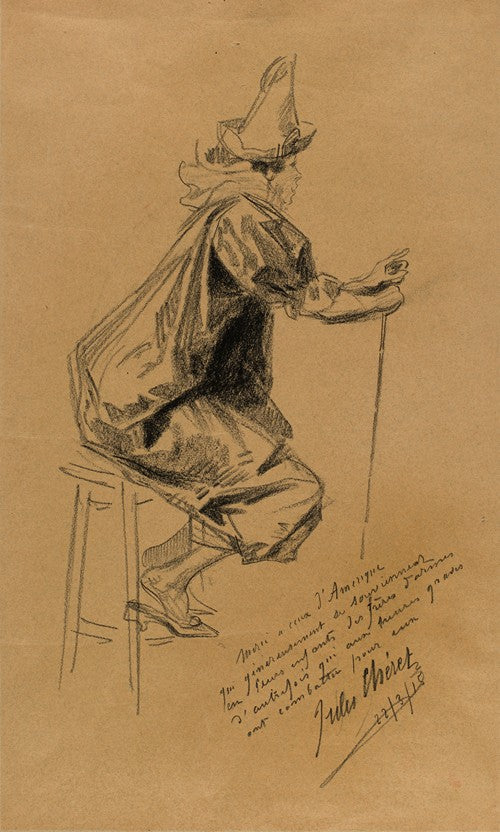 Merci a ceux d'Amerique
qui généreusement se souviennent
en leurs enfants des frères d'armes
d'autrefois qui aux heures graves
ont combattu pour eux
Jules Chéret
22/2/18